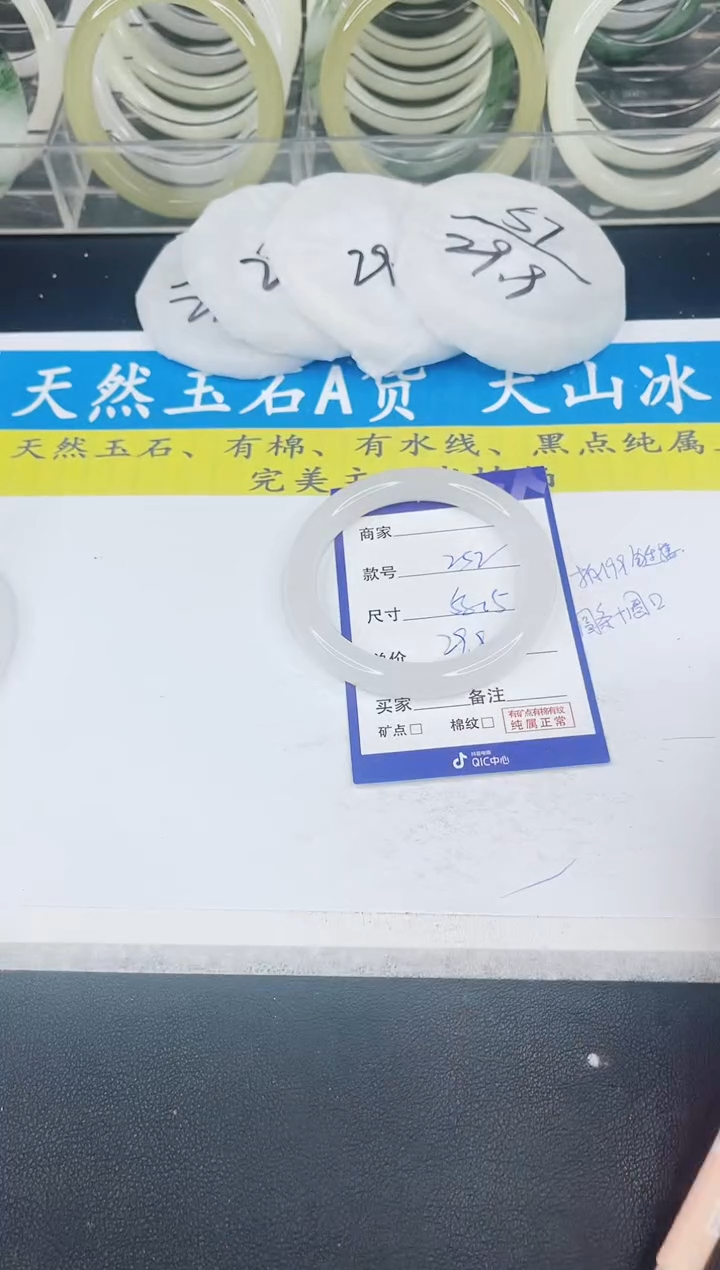 57
29.9
29
2
天然玉石A货 天山冰
天然玉石、有棉、有水线、黑点纯属
完美
商家
款号 252
尺寸 55.5
29.9
买家 备注
矿点□ 棉纹□ 有矿点有棉有纹
纯属正常
抖音电商
QIC中心